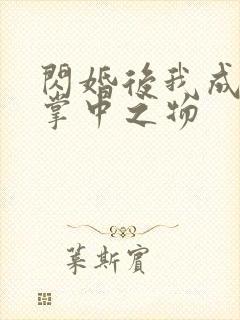 閃婚後我成
掌中之物
葉斯賓